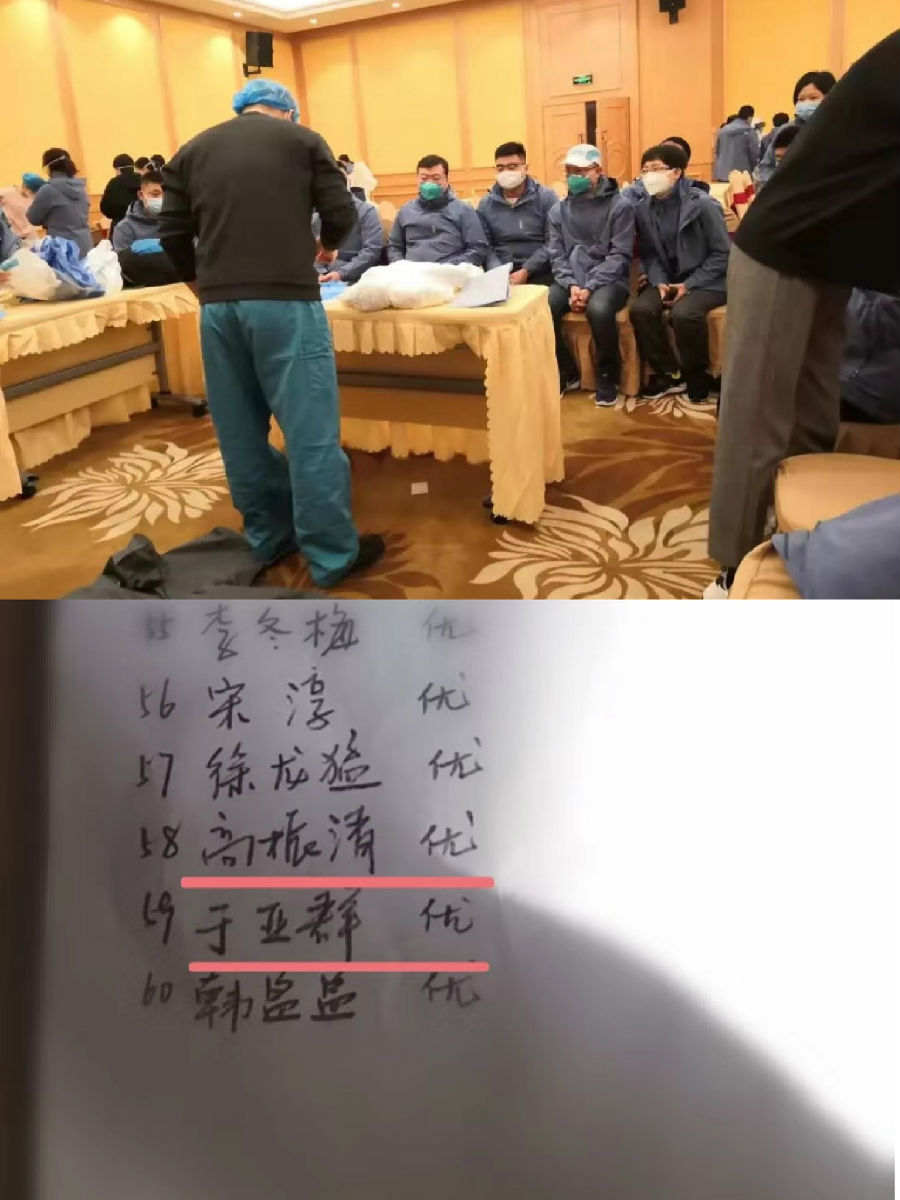 55 李冬梅 优
56 宋淳 优
57 徐龙猛 优
58 高振清 优
59 于亚群 优
60 韩监监 优